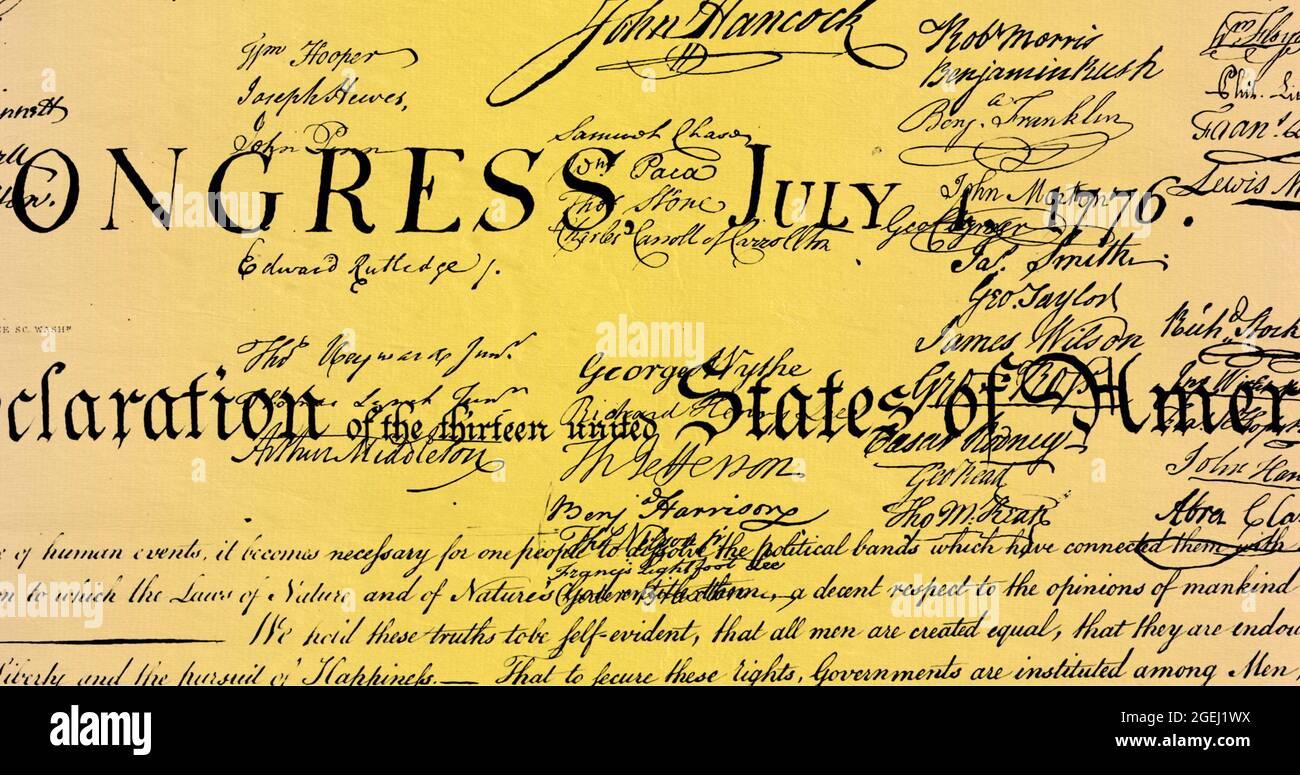 John Hancock
Wm Hooper
Joseph Hewes,
John Penn
Edward Rutledge /.
Thos Heyward Junr.
Lynch Junr.
Arthur Middleton
Samuel Chase
Wm. Paca
Thos. Stone
Charles Carroll of Carrollton
George Wythe
Richard Henry Lee
Th Jefferson
Benja Harrison
Thos Nelson jr.
Francis Lightfoot Lee
Robt Morris
Benjamin Rush
Benja. Franklin
John Morton
Geo Clymer
Jas. Smith
Geo. Taylor
James Wilson
Geo. Ross
Caesar Rodney
Geo Read
Tho M:Kean
Wm. Floyd
Phil. Li
Lewis M
Richd. Stock
John Har
Abra Cla
ONGRESS, JULY 4, 1776.
E SC. WASHn
eclaration of the thirteen united States of Amer
e of human events, it becomes necessary for one people to dissolve the political bands which have connected them with
en to which the Laws of Nature and of Nature's God entitle them, a decent respect to the opinions of mankind
We hold these truths to be self-evident, that all men are created equal, that they are endow
Liberty and the pursuit of Happiness.— That to secure these rights, Governments are instituted among Men,
alamy
alamy
Image ID: 2GEJ1WX
www.alamy.com